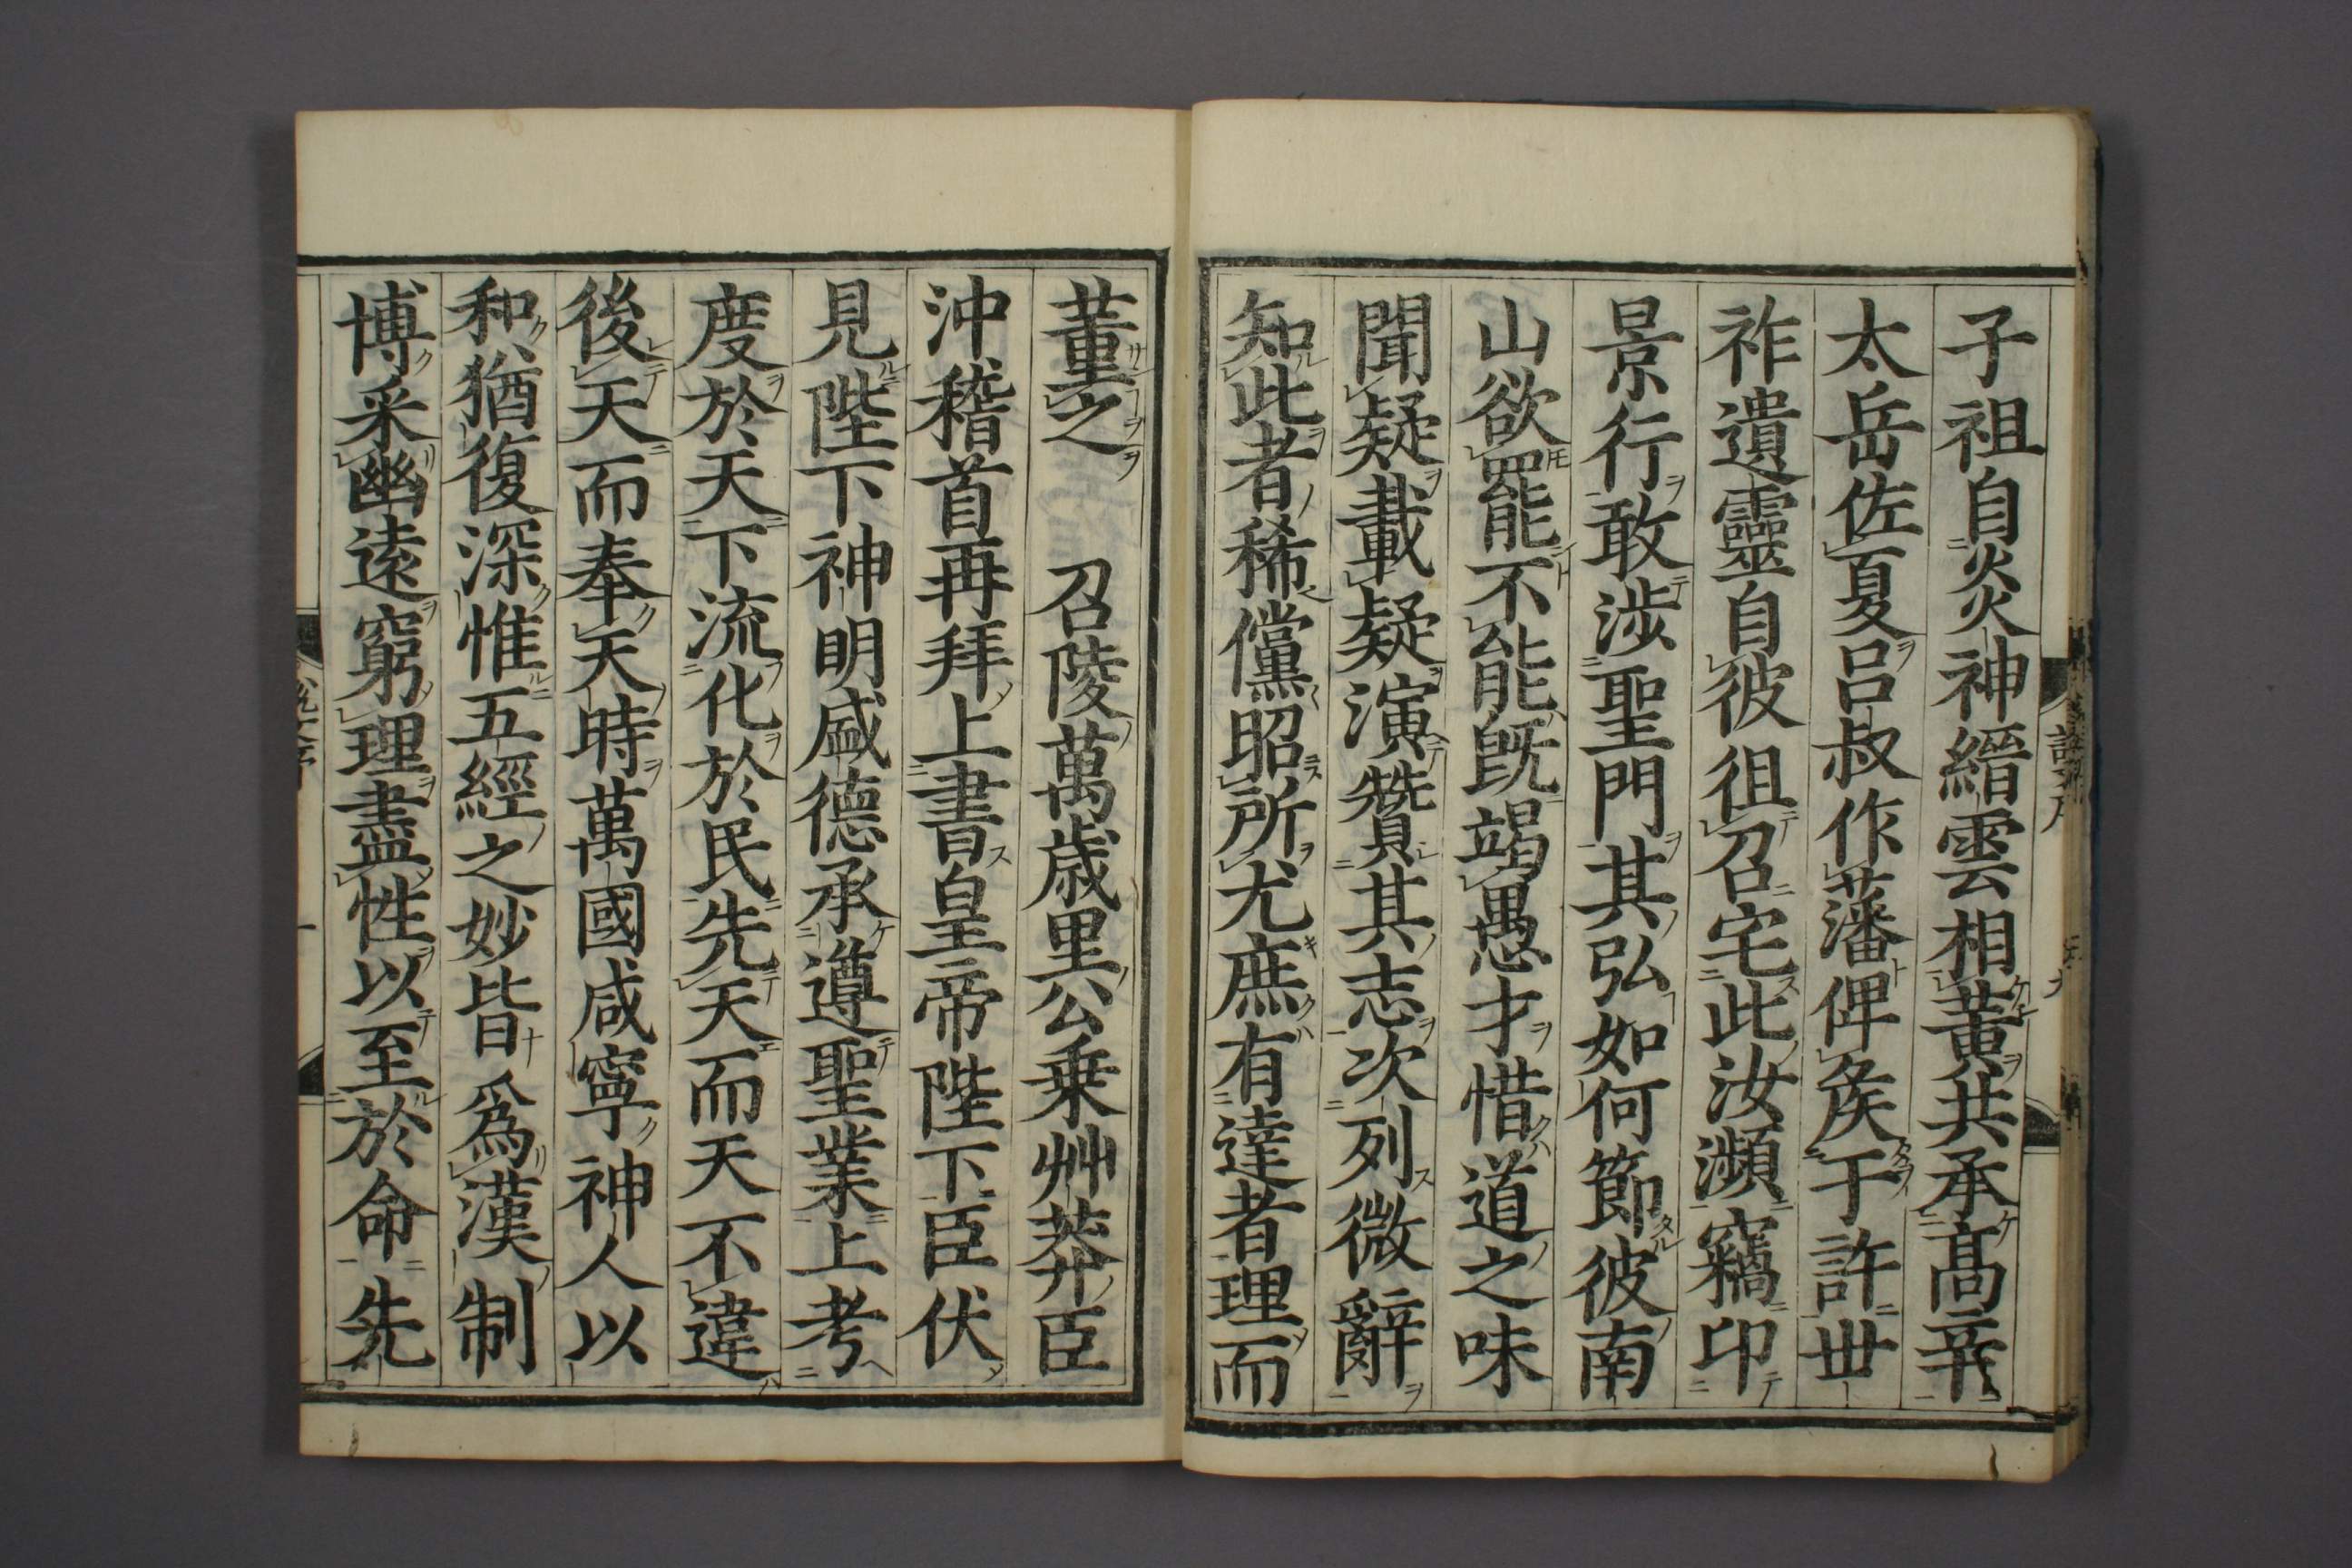 子祖自炎神縉雲相黄共承髙辛
太岳佐夏呂叔作藩俾矦于許丗
祚遺靈自彼徂召宅此汝瀕竊印
景行敢涉聖門其弘如何節彼南
山欲罷不能既竭愚才惜道之味
聞疑載疑演贊其志次列微辭
知此者稀儻昭所尤庶有達者理而
董之　召陵萬歳里公乗艸莽臣
沖稽首再拜上書皇帝陛下臣伏
見陛下神明盛德承遵聖業上考
度於天下流化於民先天而天不違
後天而奉天時萬國咸寧神人以
和猶復深惟五經之妙皆爲漢制
博采幽遠窮理盡性以至於命先